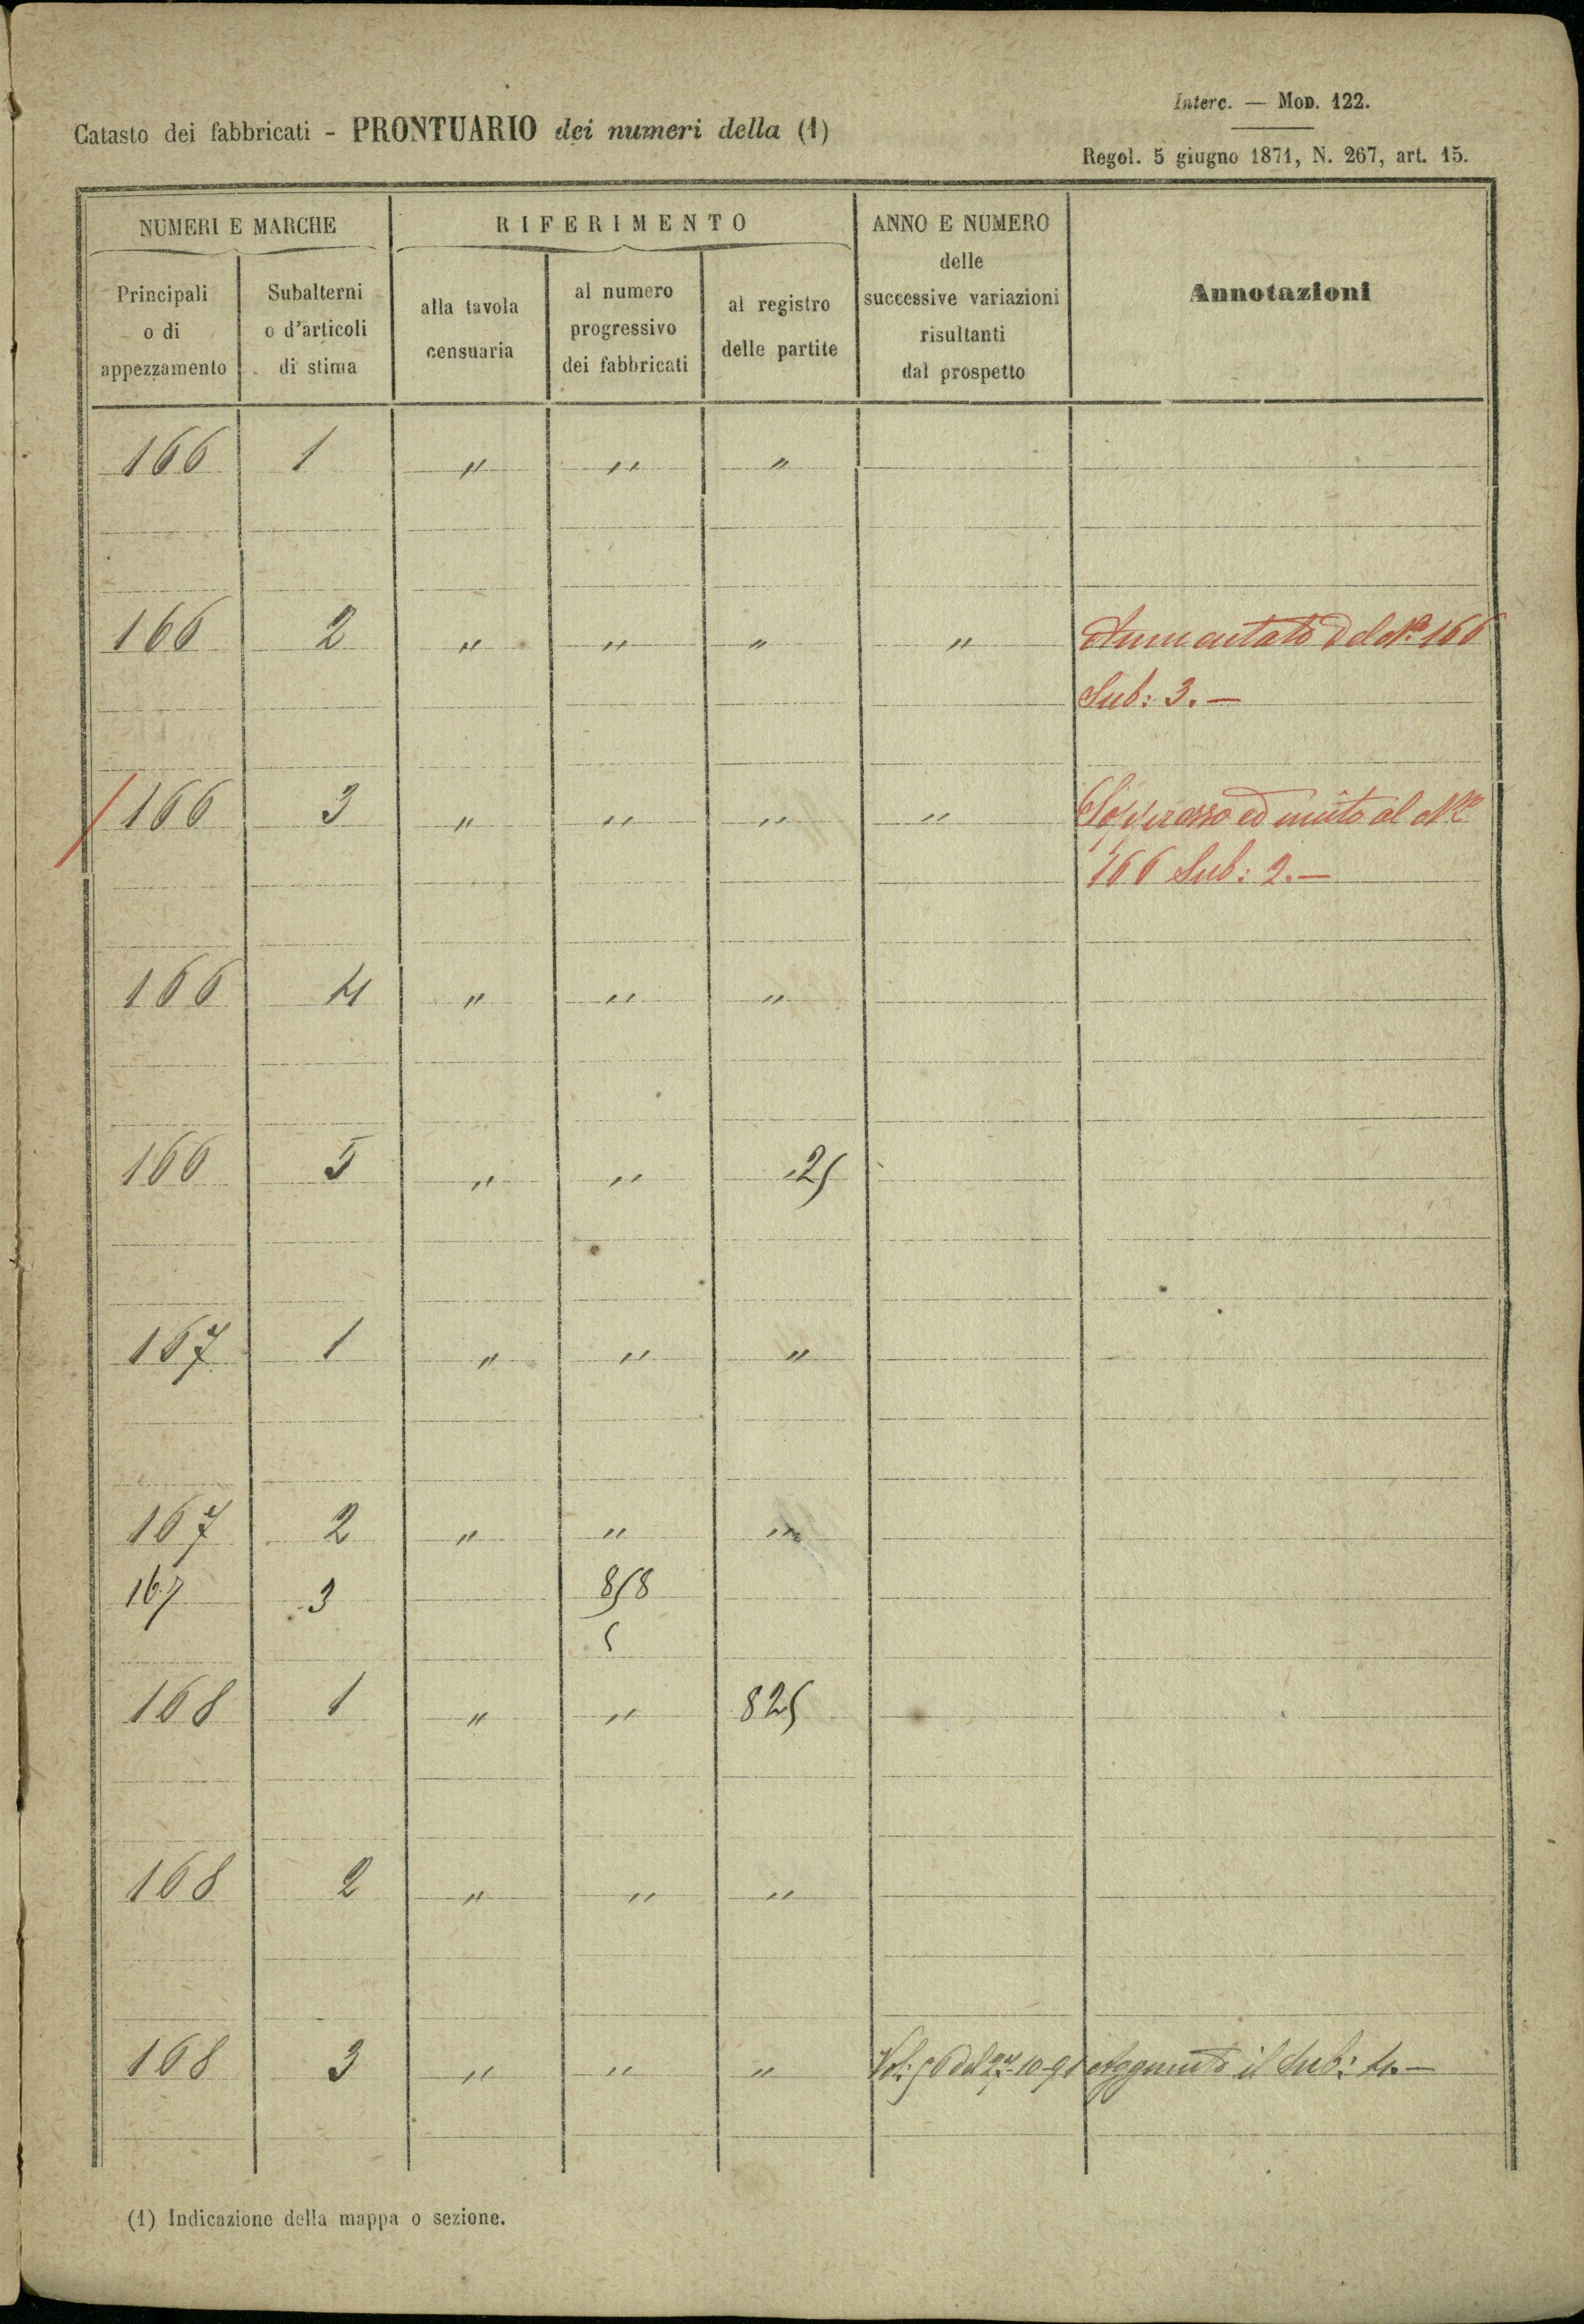 Interc. — MOD. 122.
Catasto dei fabbricati - PRONTUARIO dei numeri della (1)
Regol. 5 giugno 1871, N. 267, art. 15.
NUMERI E MARCHE
RIFERIMENTO
ANNO E NUMERO
delle
successive variazioni
risultanti
dal prospetto
Annotazioni
Principali
o di
appezzamento
Subalterni
o d'articoli
di stima
alla tavola
censuaria
al numero
progressivo
dei fabbricati
al registro
delle partite
166 1 " " "
166 2 " " " " Aumentato del N° 166
Sub: 3. —
166 3 " " " " Soppresso ed unito al N°
166 Sub: 2. —
166 4 " " "
166 5 " " 25
167 1 " " "
167 2 " " "
167 3 858
5
168 1 " " 825
168 2 " " "
168 3 " " " Vol: 56 del 27-10-91 Aggiunto il Sub: 4. —
(1) Indicazione della mappa o sezione.